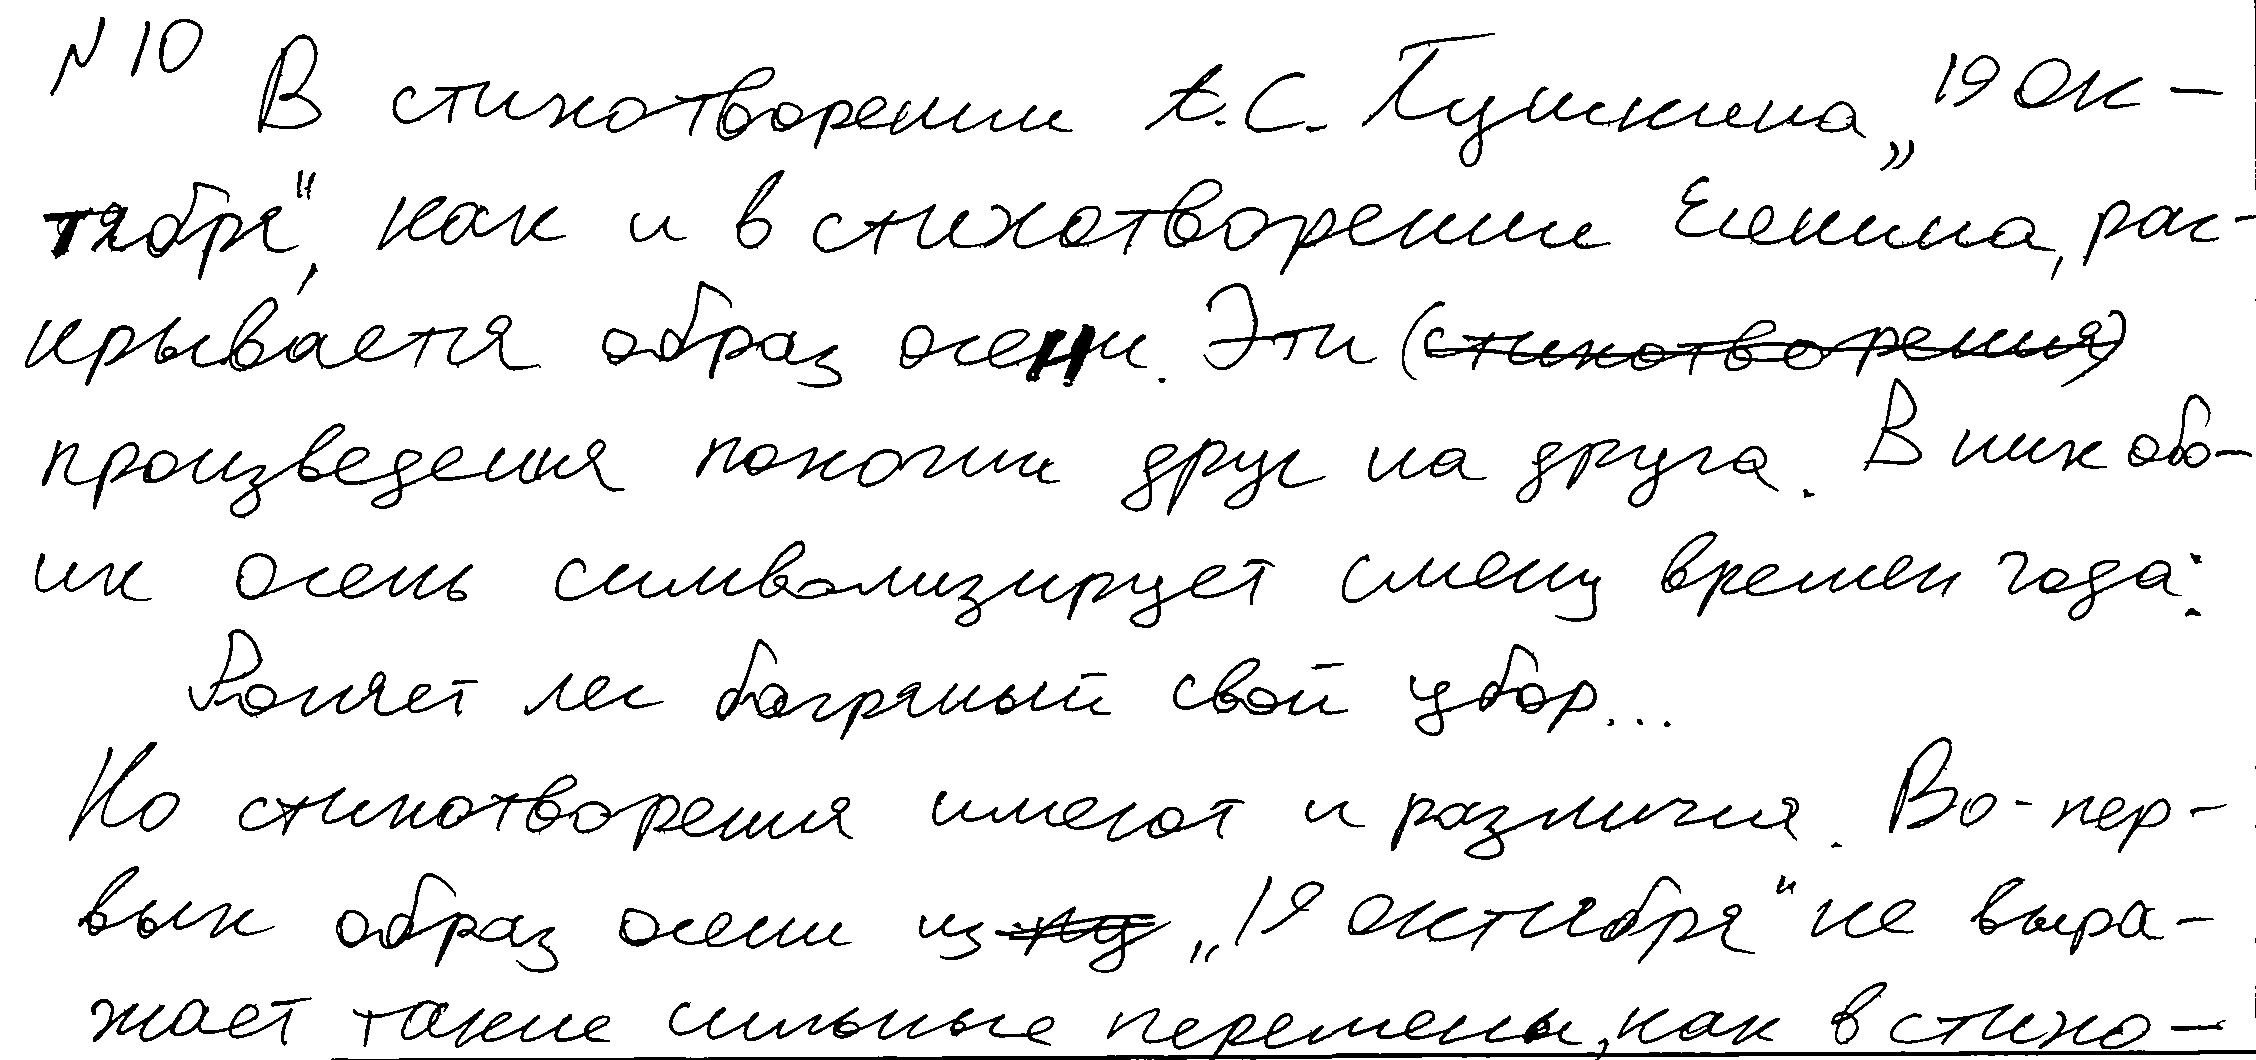 № 10
В стихотворении А.С. Пушкина „19 ок-
тября", как и в стихотворении Есенина, рас-
крывается образ осени. Эти (стихотворения)
произведения похожи друг на друга. В них обо-
их осень символизирует смену времен года:
Роняет лес багряный свой убор...
Но стихотворения имеют и различия. Во-пер-
вых образ осени из „19 октября" не выра-
жает такие сильные перемены, как в стихо-